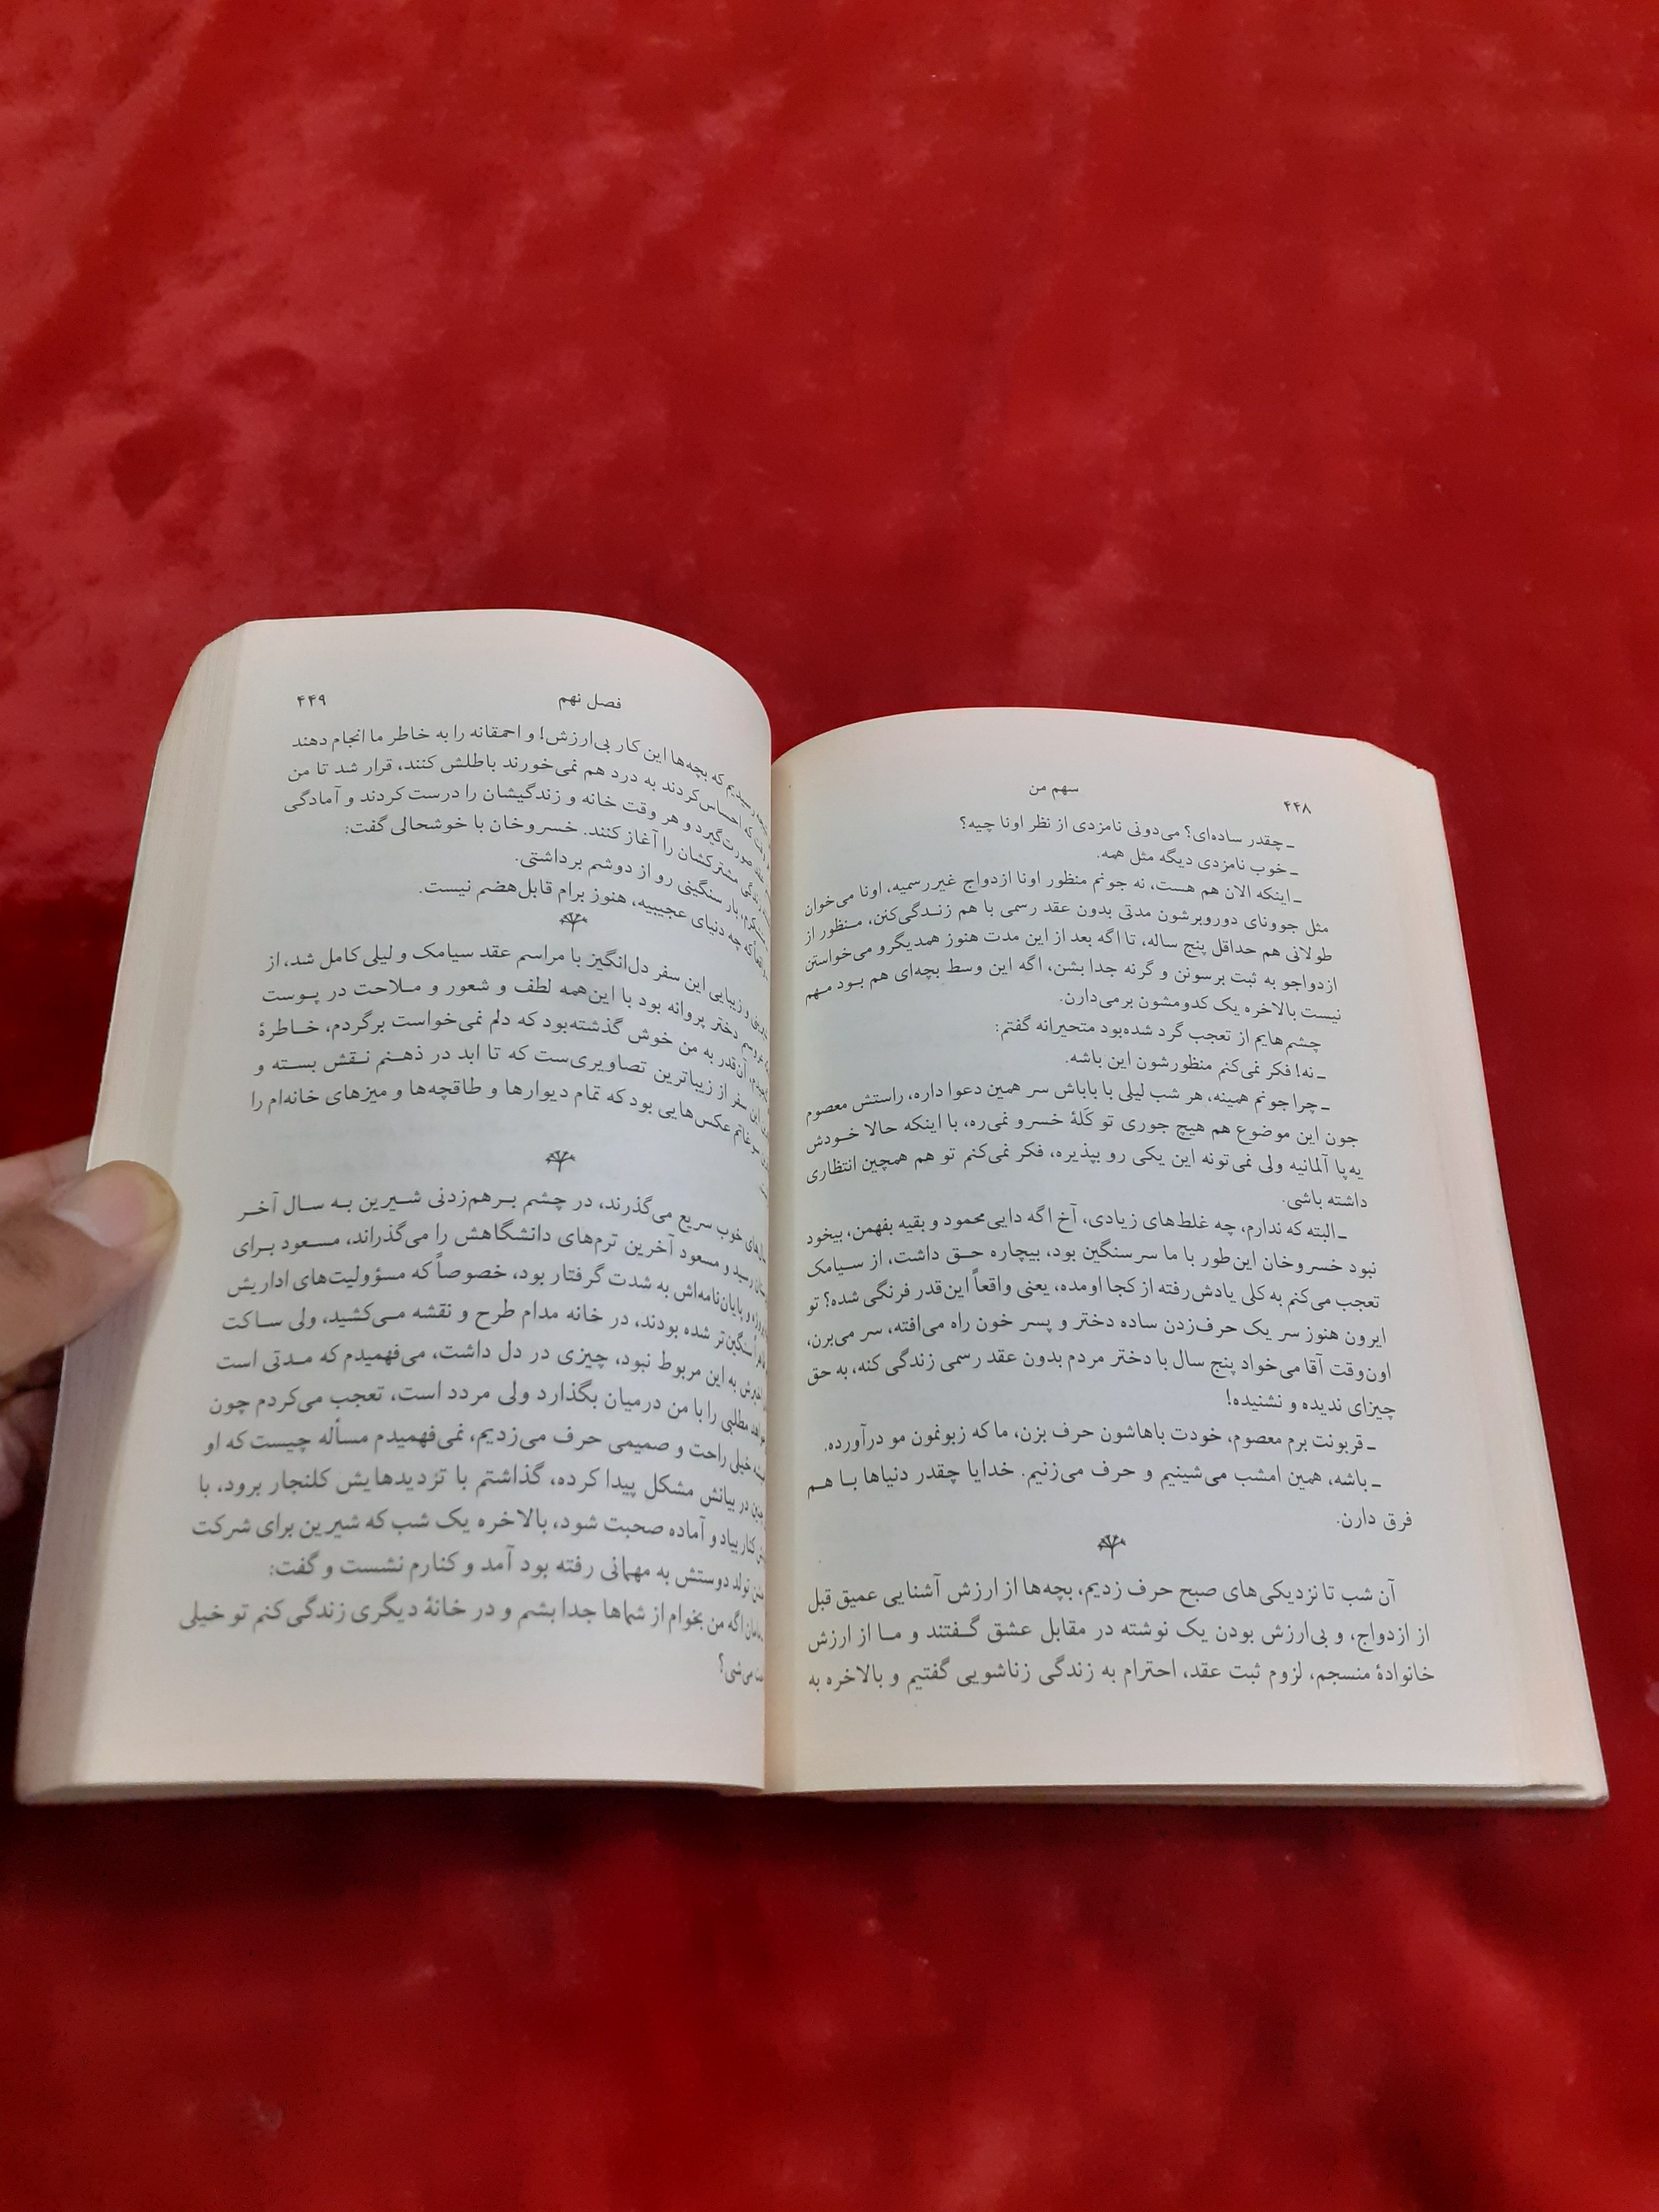 ۴۴۸
سهم من
ـ چقدر ساده‌ای؟ می‌دونی نامزدی از نظر اونا چیه؟
ـ خوب نامزدی دیگه مثل همه.
ـ اینکه الان هم هست، نه جونم منظور اونا ازدواج غیررسمیه، اونا می‌خوان
مثل جوونای دوروبرشون مدتی بدون عقد رسمی با هم زندگی‌کنن، منظور از
طولانی هم حداقل پنج ساله، تا اگه بعد از این مدت هنوز همدیگرو می‌خواستن
ازدواجو به ثبت برسونن و گرنه جدا بشن، اگه این وسط بچه‌ای هم بود مهم
نیست بالاخره یک کدومشون برمی‌دارن.
چشم‌هایم از تعجب گرد شده‌بود متحیرانه گفتم:
ـ نه! فکر نمی‌کنم منظورشون این باشه.
ـ چرا جونم همینه، هر شب لیلی با باباش سر همین دعوا داره، راستش معصوم
جون این موضوع هم هیچ جوری تو کَلهٔ خسرو نمی‌ره، با اینکه حالا خودش
یه‌پا آلمانیه ولی نمی‌تونه این یکی رو بپذیره، فکر نمی‌کنم تو هم همچین انتظاری
داشته باشی.
ـ البته که ندارم، چه غلط‌های زیادی، آخ اگه دایی‌محمود و بقیه بفهمن، بیخود
نبود خسروخان این‌طور با ما سرسنگین بود، بیچاره حق داشت، از سیامک
تعجب می‌کنم به کلی یادش‌رفته از کجا اومده، یعنی واقعاً این‌قدر فرنگی شده؟ تو
ایرون هنوز سر یک حرف‌زدن ساده دختر و پسر خون راه می‌افته، سر می‌برن،
اون‌وقت آقا می‌خواد پنج سال با دختر مردم بدون عقد رسمی زندگی کنه، به حق
چیزای ندیده و نشنیده!
ـ قربونت برم معصوم، خودت باهاشون حرف بزن، ما که زبونمون مو درآورده.
ـ باشه، همین امشب می‌شینیم و حرف می‌زنیم. خدایا چقدر دنیاها با هم
فرق دارن.
آن شب تا نزدیکی‌های صبح حرف زدیم، بچه‌ها از ارزش آشنایی عمیق قبل
از ازدواج، و بی‌ارزش بودن یک نوشته در مقابل عشق گفتند و ما از ارزش
خانوادهٔ منسجم، لزوم ثبت عقد، احترام به زندگی زناشویی گفتیم و بالاخره به
فصل نهم
۴۴۹
رسیدیم که بچه‌ها این کار بی‌ارزش! و احمقانه را به خاطر ما انجام دهند
که احساس‌کردند به درد هم نمی‌خورند باطلش کنند، قرار شد تا من
صورت‌گیرد و هر وقت خانه و زندگیشان را درست کردند و آمادگی
زندگی مشترکشان را آغاز کنند. خسروخان با خوشحالی گفت:
بار سنگینی رو از دوشم برداشتی.
که چه دنیای عجیبیه، هنوز برام قابل‌هضم نیست.
و زیبایی این سفر دل‌انگیز با مراسم عقد سیامک و لیلی کامل شد، از
عروسم دختر پروانه بود با این‌همه لطف و شعور و ملاحت در پوست
آن‌قدر به من خوش گذشته‌بود که دلم نمی‌خواست برگردم، خاطرهٔ
این سفر از زیباترین تصاویری‌ست که تا ابد در ذهنم نقش بسته و
سوغاتم عکس‌هایی بود که تمام دیوارها و طاقچه‌ها و میزهای خانه‌ام را
خوب سریع می‌گذرند، در چشم برهم‌زدنی شیرین به سال آخر
رسید و مسعود آخرین ترم‌های دانشگاهش را می‌گذراند، مسعود برای
و پایان‌نامه‌اش به شدت گرفتار بود، خصوصاً که مسؤولیت‌های اداریش
سنگین‌تر شده بودند، در خانه مدام طرح و نقشه می‌کشید، ولی ساکت
به این مربوط نبود، چیزی در دل داشت، می‌فهمیدم که مدتی است
مطلبی را با من درمیان بگذارد ولی مردد است، تعجب می‌کردم چون
خیلی راحت و صمیمی حرف می‌زدیم، نمی‌فهمیدم مسأله چیست که او
در بیانش مشکل پیدا کرده، گذاشتم با تردیدهایش کلنجار برود، با
کنار بیاد و آماده صحبت شود، بالاخره یک شب که شیرین برای شرکت
تولد دوستش به مهمانی رفته بود آمد و کنارم نشست و گفت:
اگه من بخوام از شماها جدا بشم و در خانهٔ دیگری زندگی کنم تو خیلی
می‌شی؟